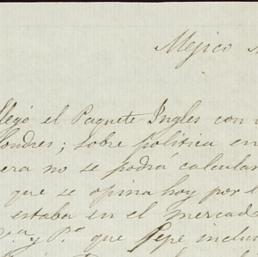 Mejico
llegó el Paquete Ingles con
Londres; sobre politica en
era no se podrá calcular
que se opina hoy por l
estaba en el mercad
y P.ª que Pepe inclu